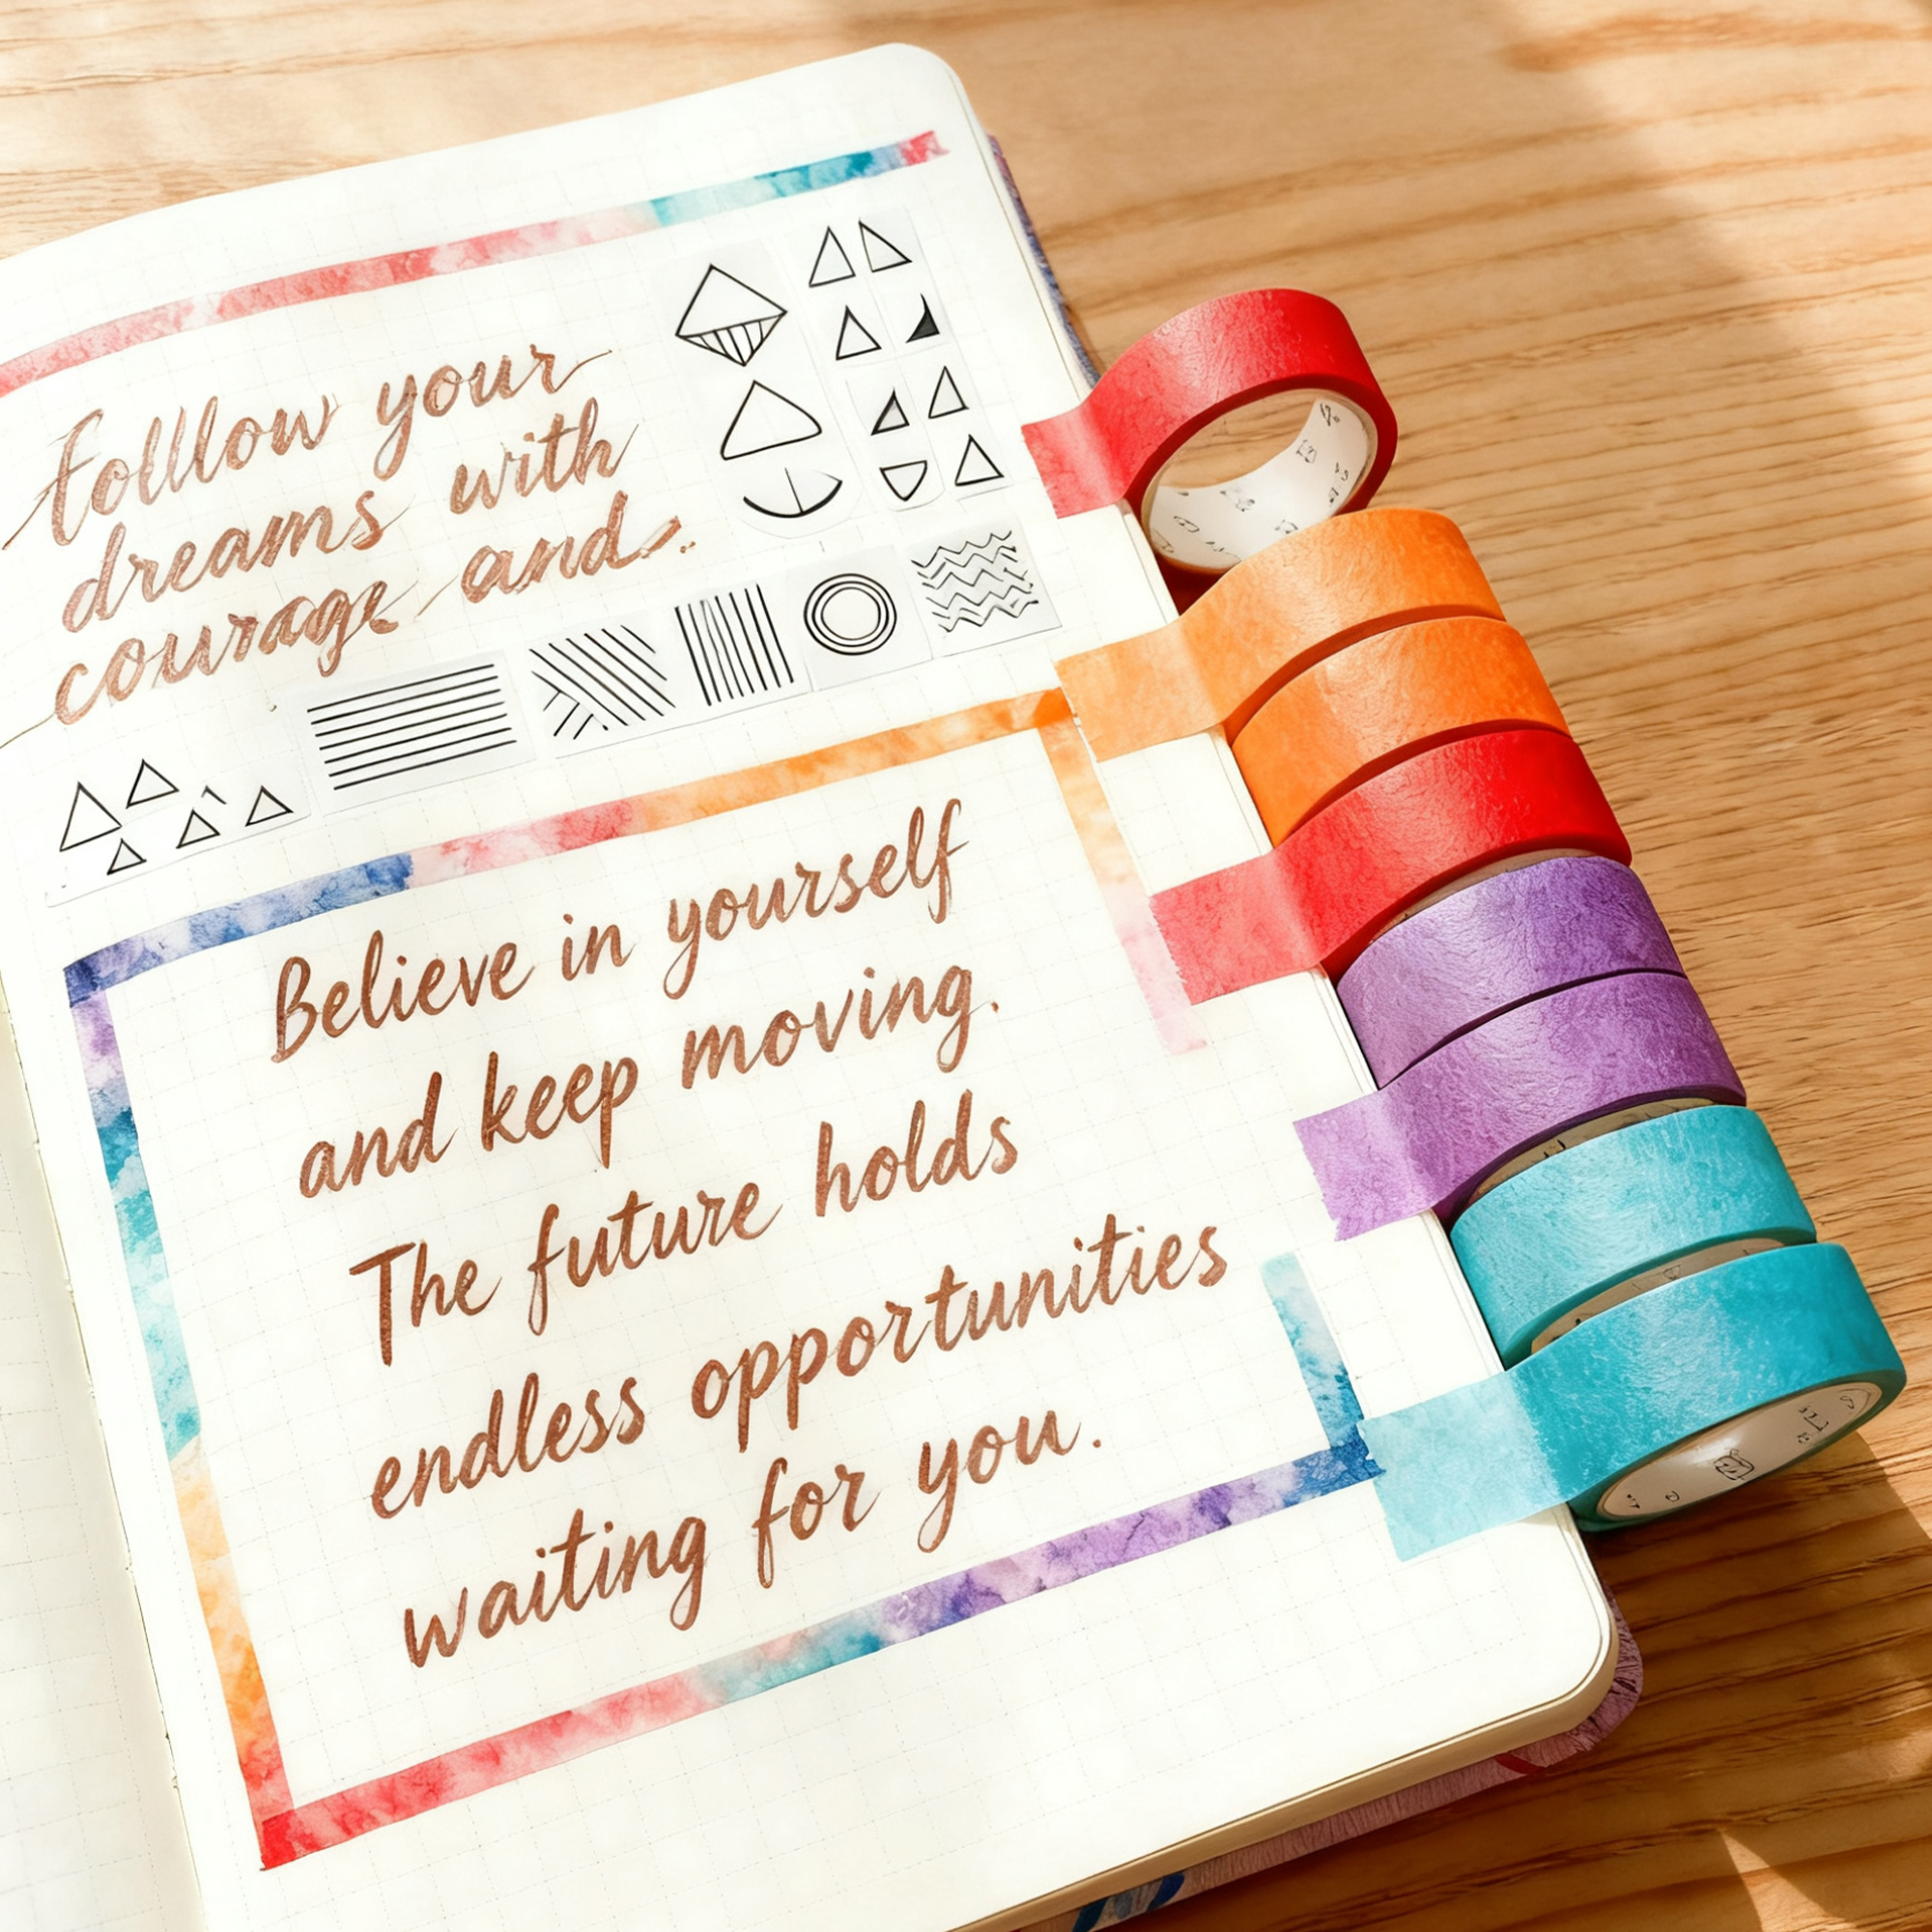 Folllow your
dreams with
courage and.
Believe in yourself
and keep moving.
The future holds
endless opportunities
waiting for you.